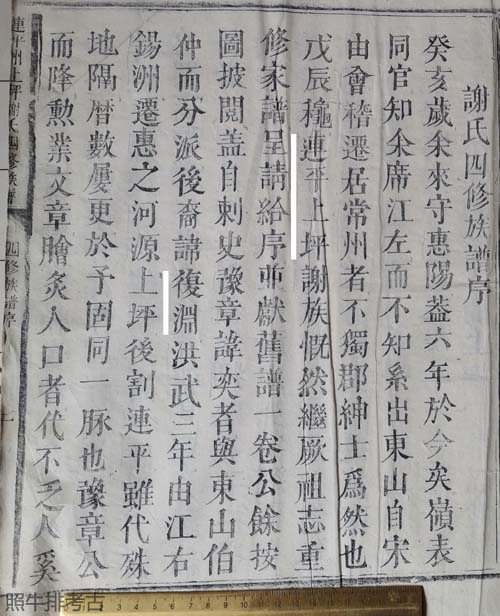 謝氏四修族譜序
癸亥歲余來守惠陽葢六年於今矣嶺表
同官知余席江左而不知系出東山自宋
由會稽遷居常州者不獨郡紳士爲然也
戊辰龝連平上坪謝族慨然繼厥祖志重
修家譜呈請給序並獻舊譜一卷公餘按
圖披閱葢自刺史豫章諱奕者與東山伯
仲而分派後裔諱復淵洪武三年由江右
錫洲遷惠之河源上坪後割連平雖代殊
地隔曆數屢更於予固同一脉也豫章公
而降勲業文章膾炙人口者代不乏人奚
連平州上坪謝氏四修族譜
四修族譜序
照牛排考古